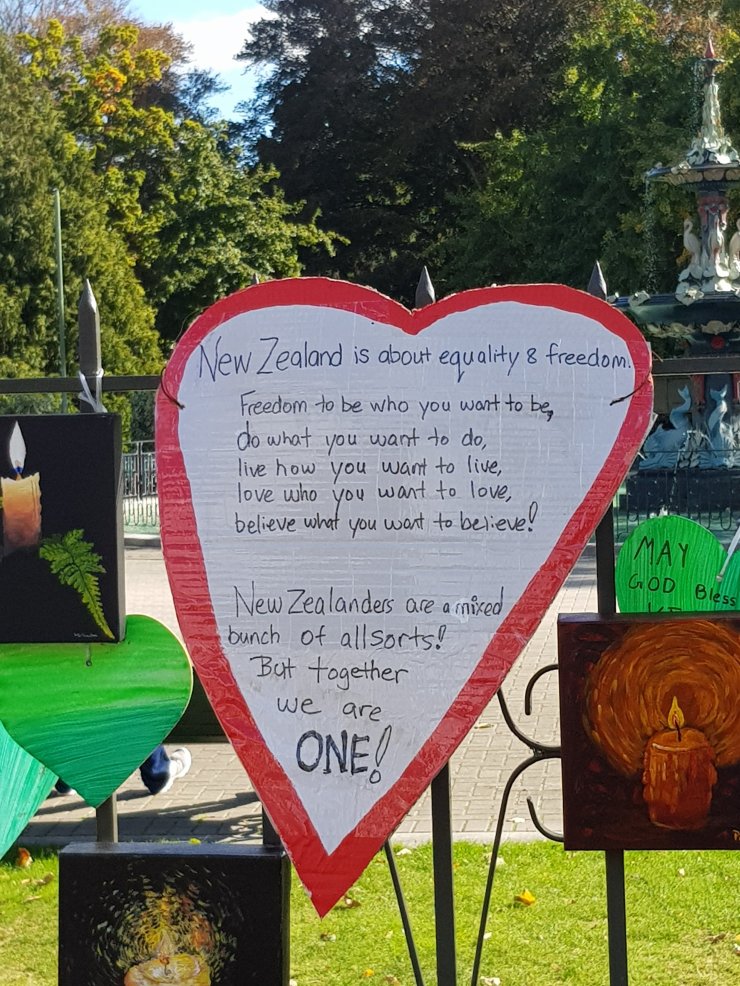 New Zealand is about equality & freedom.
Freedom to be who you want to be,
do what you want to do,
live how you want to live,
love who you want to love,
believe what you want to believe!
New Zealanders are a mixed
bunch of allsorts!
But together
we are
ONE!
MAY
GOD Bless